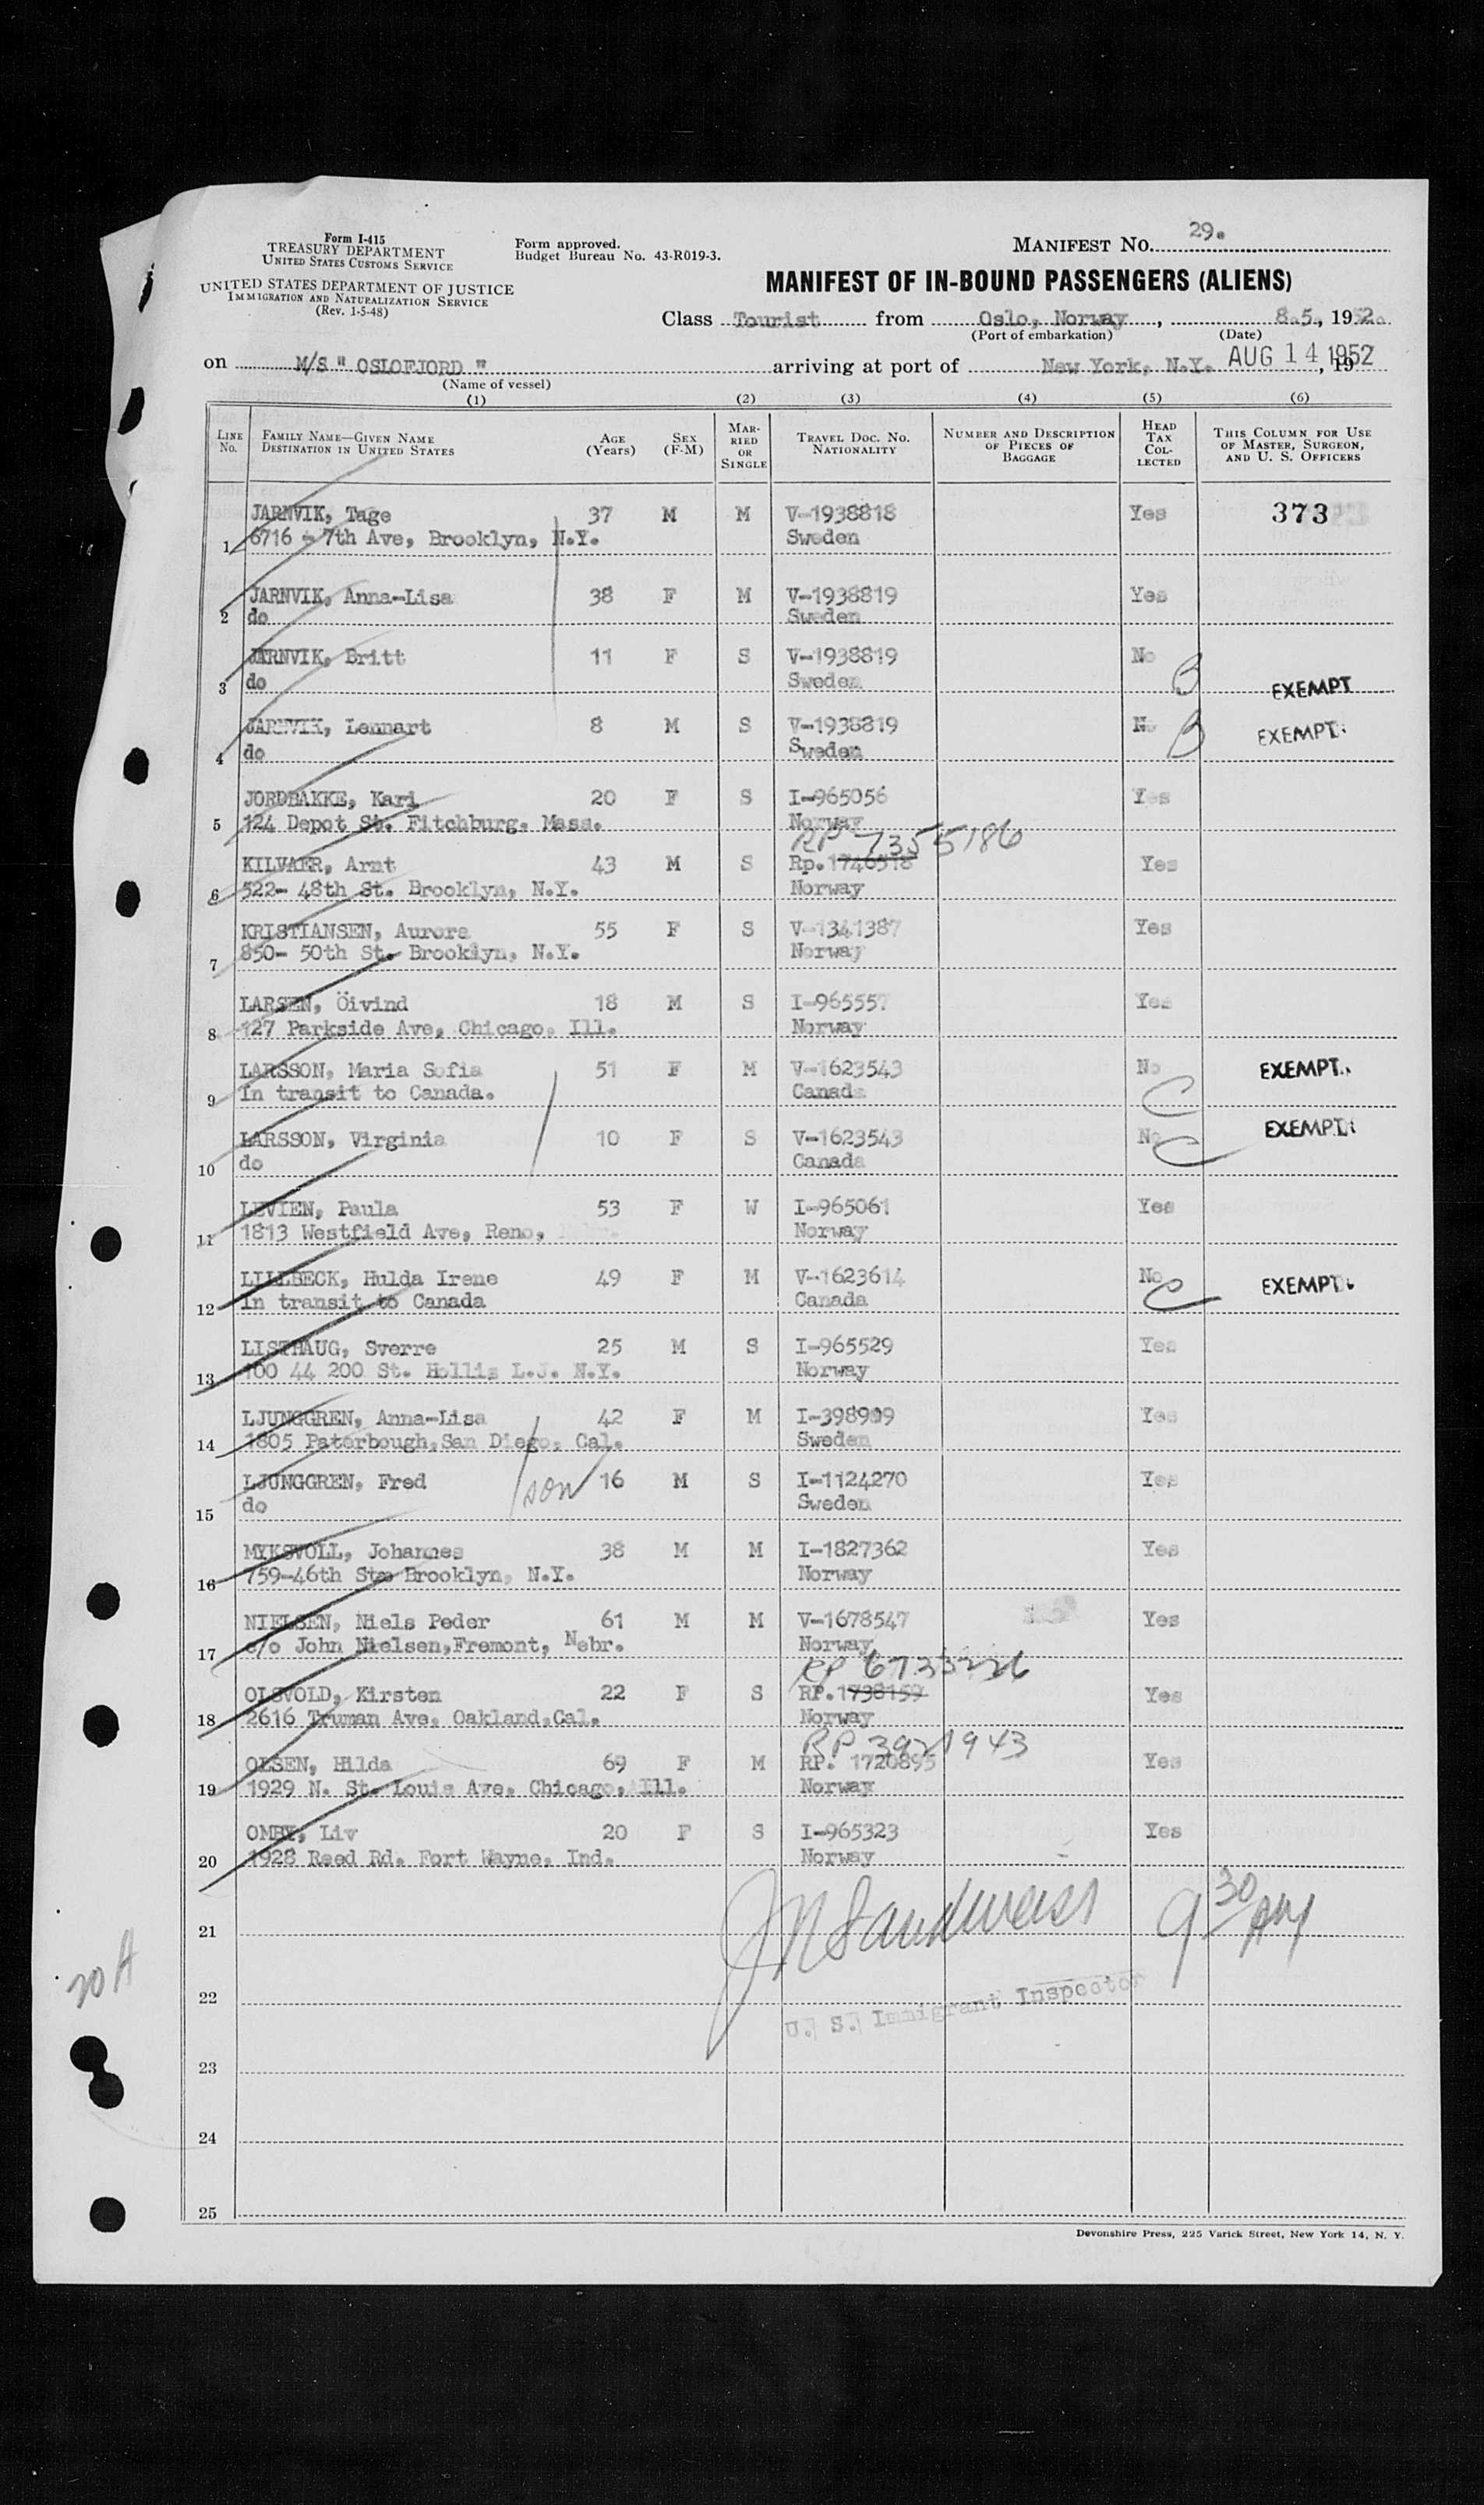 Form I-415
TREASURY DEPARTMENT
UNITED STATES CUSTOMS SERVICE
UNITED STATES DEPARTMENT OF JUSTICE
IMMIGRATION AND NATURALIZATION SERVICE
(Rev. 1-5-48)
Form approved.
Budget Bureau No. 43-R019-3.
MANIFEST NO. 29.
MANIFEST OF IN-BOUND PASSENGERS (ALIENS)
Class Tourist from Oslo, Norway, 8.5., 1952.
(Port of embarkation) (Date)
on M/S " OSLOFJORD " arriving at port of New York, N.Y. AUG 14 1952, 19
(Name of vessel)
(1) (2) (3) (4) (5) (6)
LINE NO. FAMILY NAME—GIVEN NAME DESTINATION IN UNITED STATES AGE (Years) SEX (F-M) MARRIED OR SINGLE TRAVEL DOC. NO. NATIONALITY NUMBER AND DESCRIPTION OF PIECES OF BAGGAGE HEAD TAX COLLECTED THIS COLUMN FOR USE OF MASTER, SURGEON, AND U. S. OFFICERS
JARNVIK, Tage 37 M M V-1938818 Yes 373
1 6716 - 7th Ave, Brooklyn, N.Y. Sweden
JARNVIK, Anna-Lisa 38 F M V-1938819 Yes
2 do Sweden
JARNVIK, Britt 11 F S V-1938819 No B
3 do Sweden EXEMPT
JARNVIK, Lennart 8 M S V-1938819 No B EXEMPT
4 do Sweden
JORDBAKKE, Kari 20 F S I-965056 Yes
5 124 Depot St. Fitchburg. Mass. Norway
RP 7355186
KILVAER, Arnt 43 M S Rp.1746518 Yes
6 522- 48th St. Brooklyn, N.Y. Norway
KRISTIANSEN, Aurora 55 F S V-1341387 Yes
7 850- 50th St. Brooklyn, N.Y. Norway
LARSEN, Öivind 18 M S I-965557 Yes
8 127 Parkside Ave, Chicago. Ill. Norway
LARSSON, Maria Sofia 51 F M V-1623543 No C EXEMPT
9 In transit to Canada. Canada
LARSSON, Virginia 10 F S V-1623543 No C EXEMPT
10 do Canada
LEVIEN, Paula 53 F W I-965061 Yes
11 1813 Westfield Ave, Reno, Norway
LILLBECK, Hulda Irene 49 F M V-1623614 No C EXEMPT
12 In transit to Canada Canada
LISTHAUG, Sverre 25 M S I-965529 Yes
13 100 44 200 St. Hollis L.J. N.Y. Norway
LJUNGGREN, Anna-Lisa 42 F M I-398909 Yes
14 1805 Paterbough, San Diego, Cal. Sweden
LJUNGGREN, Fred son 16 M S I-1124270 Yes
15 do Sweden
MYKSVOLL, Johannes 38 M M I-1827362 Yes
16 759-46th St. Brooklyn, N.Y. Norway
NIELSEN, Niels Peder 61 M M V-1678547 Yes
17 c/o John Nielsen, Fremont, Nebr. Norway
RP 6733226
OLSVOLD, Kirsten 22 F S RP.1738159 Yes
18 2616 Truman Ave. Oakland, Cal. Norway
RP 3921943
OLSEN, Hilda 69 F M RP. 1720895 Yes
19 1929 N. St. Louis Ave. Chicago, Ill. Norway
OMBY, Liv 20 F S I-965323 Yes
20 1928 Reed Rd. Fort Wayne, Ind. Norway
21 JM Sandweiss 9 30 AM
20 A
22 U. S. Immigrant Inspector
23
24
25
Devonshire Press, 225 Varick Street, New York 14, N. Y.